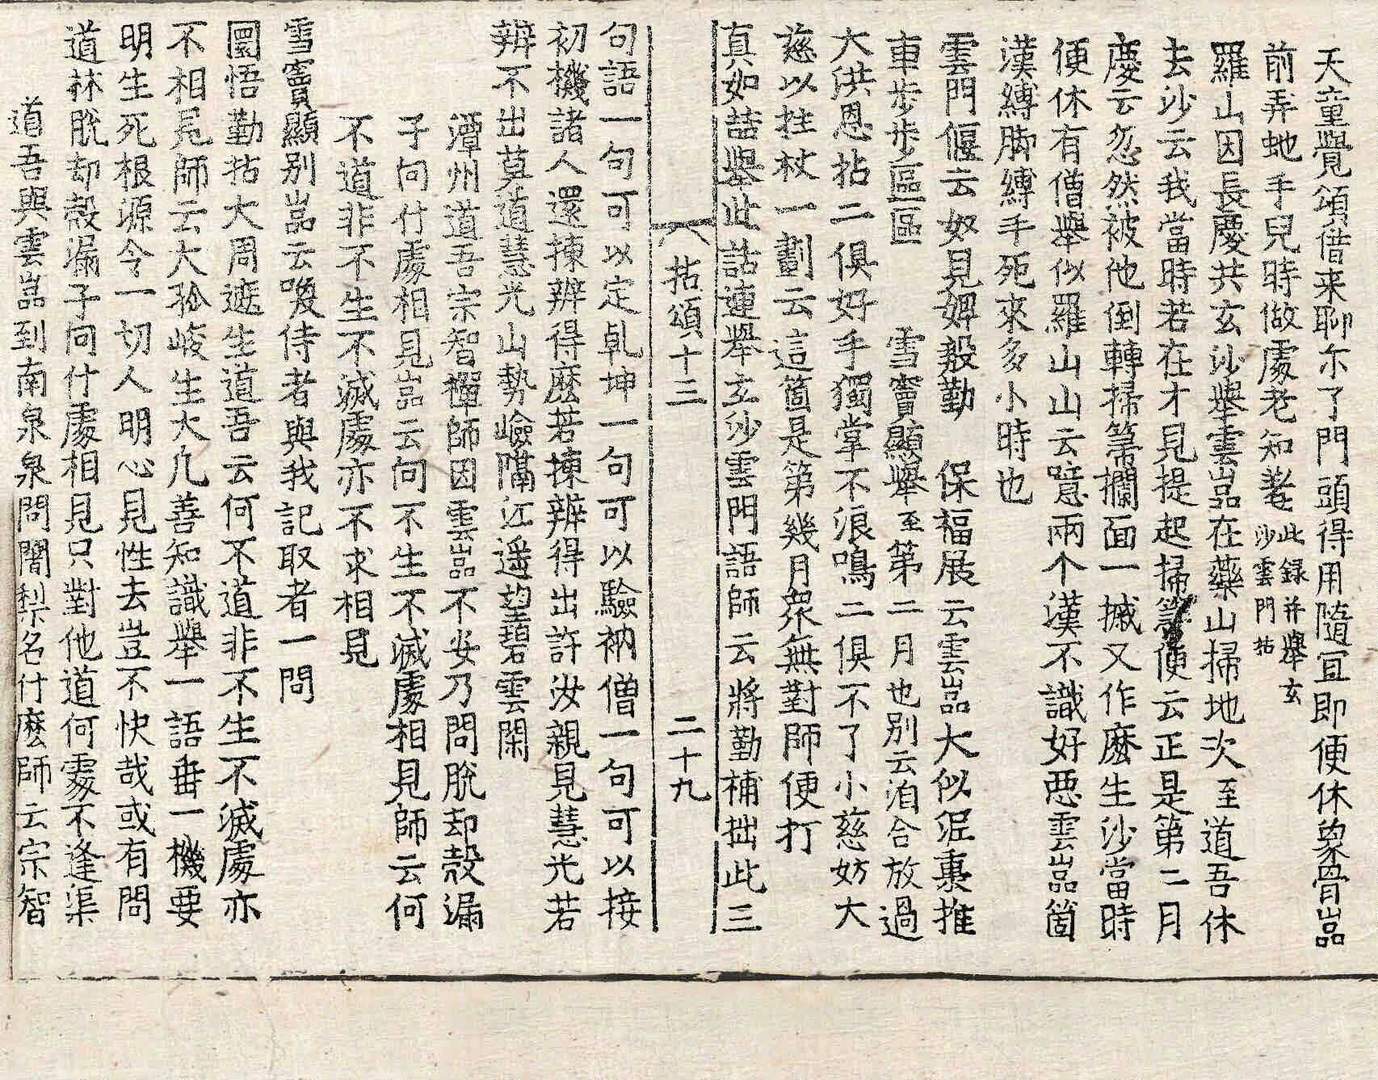 天童覺頌借来聊尒了門頭得用隨宜即便休象骨嵓
前弄虵手兒時做處老知羞此録并舉玄沙雲門拈
羅山因長慶共玄沙舉雲嵓在藥山掃地次至道吾休
去沙云我當時若在才見提起掃箒便云正是第二月
慶云忽然被他倒轉掃箒攔面一摵又作麽生沙當時
便休有僧舉似羅山山云噫兩个漢不識好惡雲嵓箇
漢縛脚縛手死來多小時也
雲門偃云奴見婢慇勤 保福展云雲嵓大似泥裏推
車步步區區 雪竇顯舉至第二月也别云洎合放過
大洪恩拈二俱好手獨掌不浪鳴二俱不了小慈妨大
慈以拄杖一劃云這箇是第幾月衆無對師便打
真如喆舉此話連舉玄沙雲門語師云將勤補拙此三
拈頌十三 二十九
句語一句可以定乹坤一句可以驗衲僧一句可以接
初機諸人還揀辨得麽若揀辨得出許汝親見慧光若
辨不出莫道慧光山勢嶮隔江遥望碧雲閑
潭州道吾宗智禪師因雲嵓不安乃問脫却殻漏
子向什處相見嵓云向不生不滅處相見師云何
不道非不生不滅處亦不求相見
雪竇顯别嵓云喚侍者與我記取者一問
圜悟勤拈大周遮生道吾云何不道非不生不滅處亦
不相見師云大孤峻生大凡善知識舉一語垂一機要
明生死根源令一切人明心見性去豈不快哉或有問
道林脫却殻漏子向什處相見只對他道何處不逢渠
道吾與雲嵓到南泉泉問闍梨名什麽師云宗智